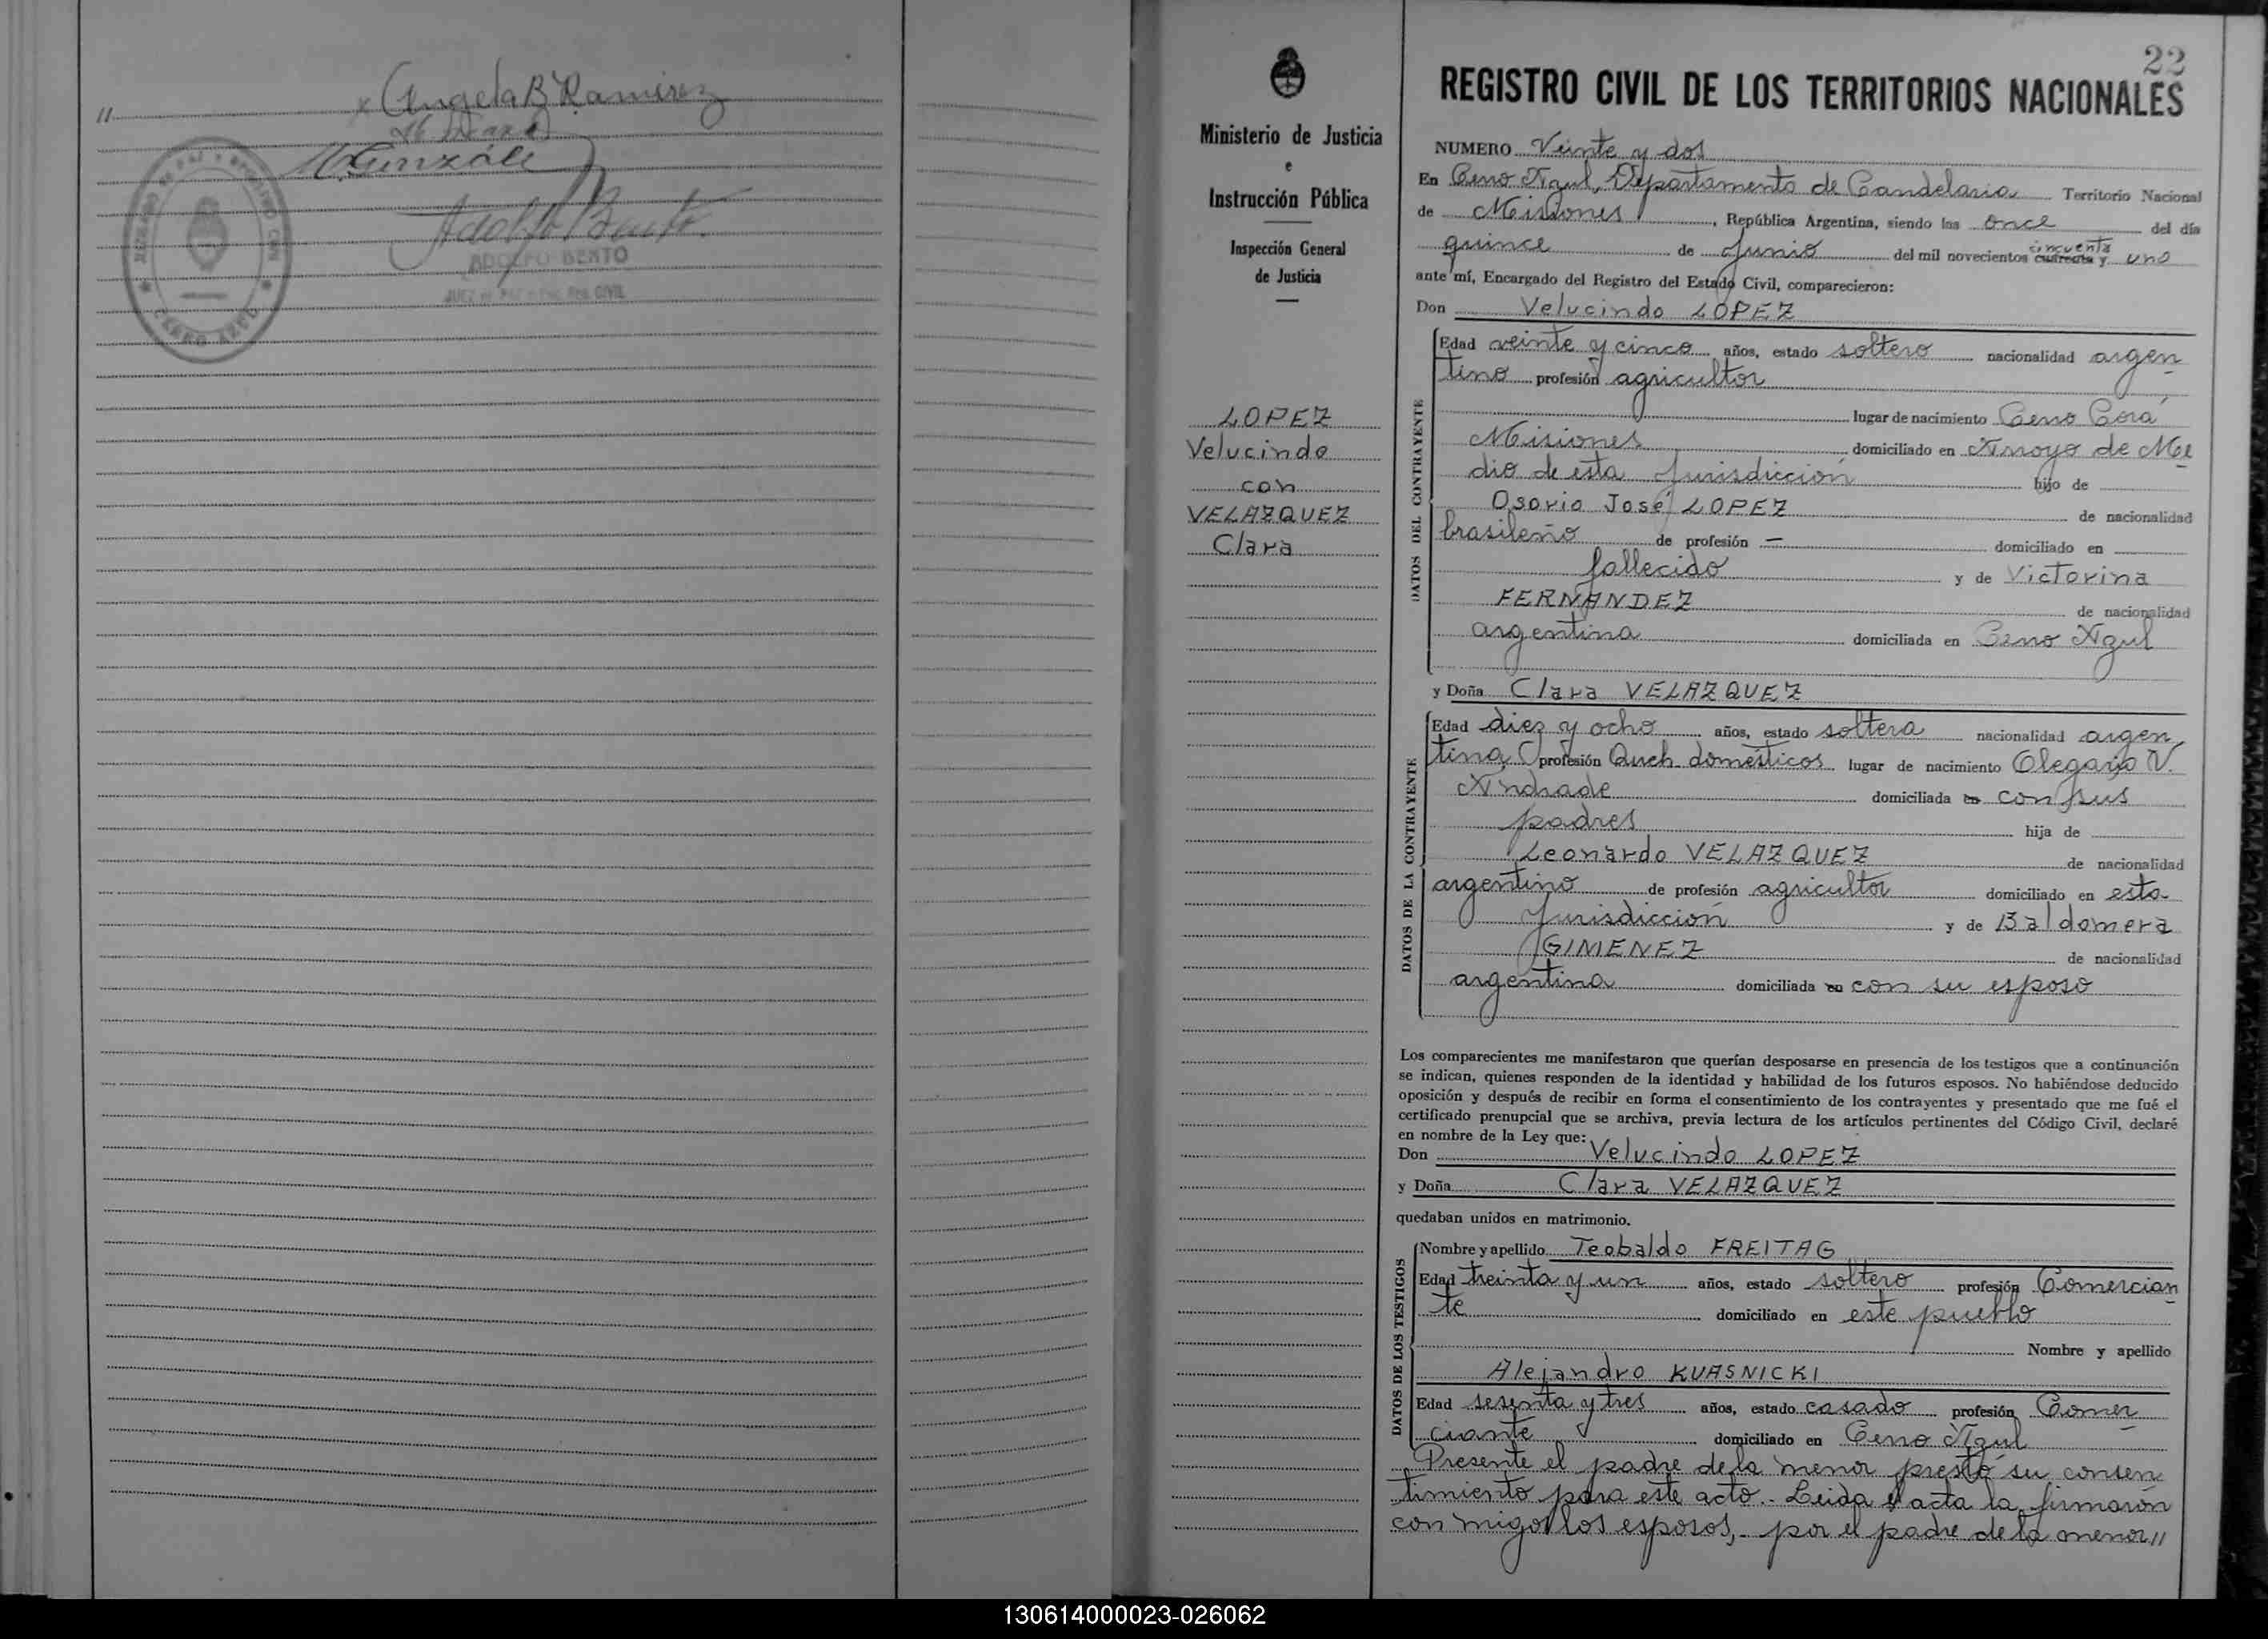 // x Angela B. Ramirez
M. González
Adolfo Bento
ADOLFO BENTO
JUEZ DE PAZ Y ENC. REG. CIVIL
CERRO AZUL
Ministerio de Justicia
e
Instrucción Pública
Inspección General
de Justicia
LOPEZ
Velucindo
con
VELAZQUEZ
Clara
22
REGISTRO CIVIL DE LOS TERRITORIOS NACIONALES
NUMERO Veinte y dos
En Cerro Azul, Departamento de Candelaria Territorio Nacional
de Misiones, República Argentina, siendo las once del día
quince de Junio del mil novecientos cuarenta cincuenta y uno
ante mí, Encargado del Registro del Estado Civil, comparecieron:
Don Velucindo LOPEZ
DATOS DEL CONTRAYENTE
Edad veinte y cinco años, estado soltero nacionalidad argen
tino profesión agricultor
lugar de nacimiento Cerro Corá
Misiones domiciliado en Arroyo de Me
dio de esta Jurisdicción hijo de
Osorio José LOPEZ de nacionalidad
brasileño de profesión — domiciliado en
fallecido y de Victorina
FERNANDEZ de nacionalidad
argentina domiciliada en Cerro Azul
y Doña Clara VELAZQUEZ
DATOS DE LA CONTRAYENTE
Edad diez y ocho años, estado soltera nacionalidad argen
tina profesión Queh. domésticos lugar de nacimiento Olegario V.
Andrade domiciliada en con sus
padres hija de
Leonardo VELAZQUEZ de nacionalidad
argentino de profesión agricultor domiciliado en esta
Jurisdicción y de Baldomera
GIMENEZ de nacionalidad
argentina domiciliada en con su esposo
Los comparecientes me manifestaron que querían desposarse en presencia de los testigos que a continuación
se indican, quienes responden de la identidad y habilidad de los futuros esposos. No habiéndose deducido
oposición y después de recibir en forma el consentimiento de los contrayentes y presentado que me fué el
certificado prenupcial que se archiva, previa lectura de los artículos pertinentes del Código Civil, declaré
en nombre de la Ley que:
Don Velucindo LOPEZ
y Doña Clara VELAZQUEZ
quedaban unidos en matrimonio.
DATOS DE LOS TESTIGOS
Nombre y apellido Teobaldo FREITAG
Edad treinta y un años, estado soltero profesión Comercian
te domiciliado en este pueblo
Nombre y apellido
Alejandro KUASNICKI
Edad sesenta y tres años, estado casado profesión Comer
ciante domiciliado en Cerro Azul
Presente el padre de la menor prestó su consen
timiento para este acto.- Leida el acta la firmaron
con migo los esposos,- por el padre de la menor//
130614000023-026062